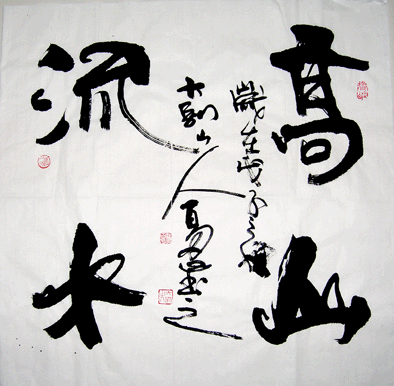 高山
流水
歲在戊子之秋
大別山人
書之